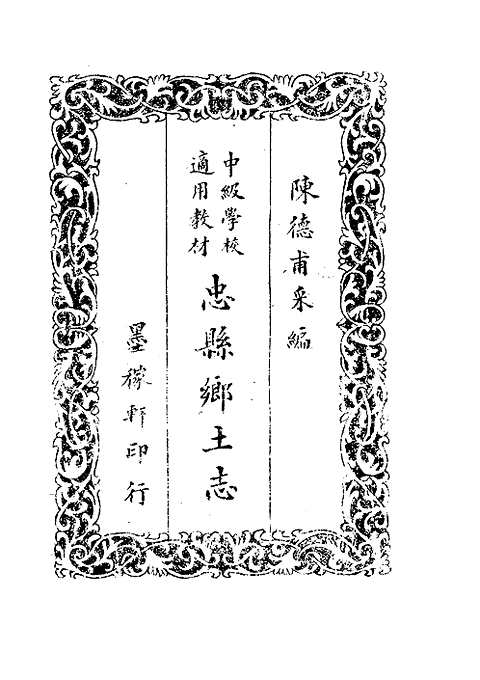 陳德甫采編
中級學校
適用教材
忠縣鄉土志
墨稼軒印行